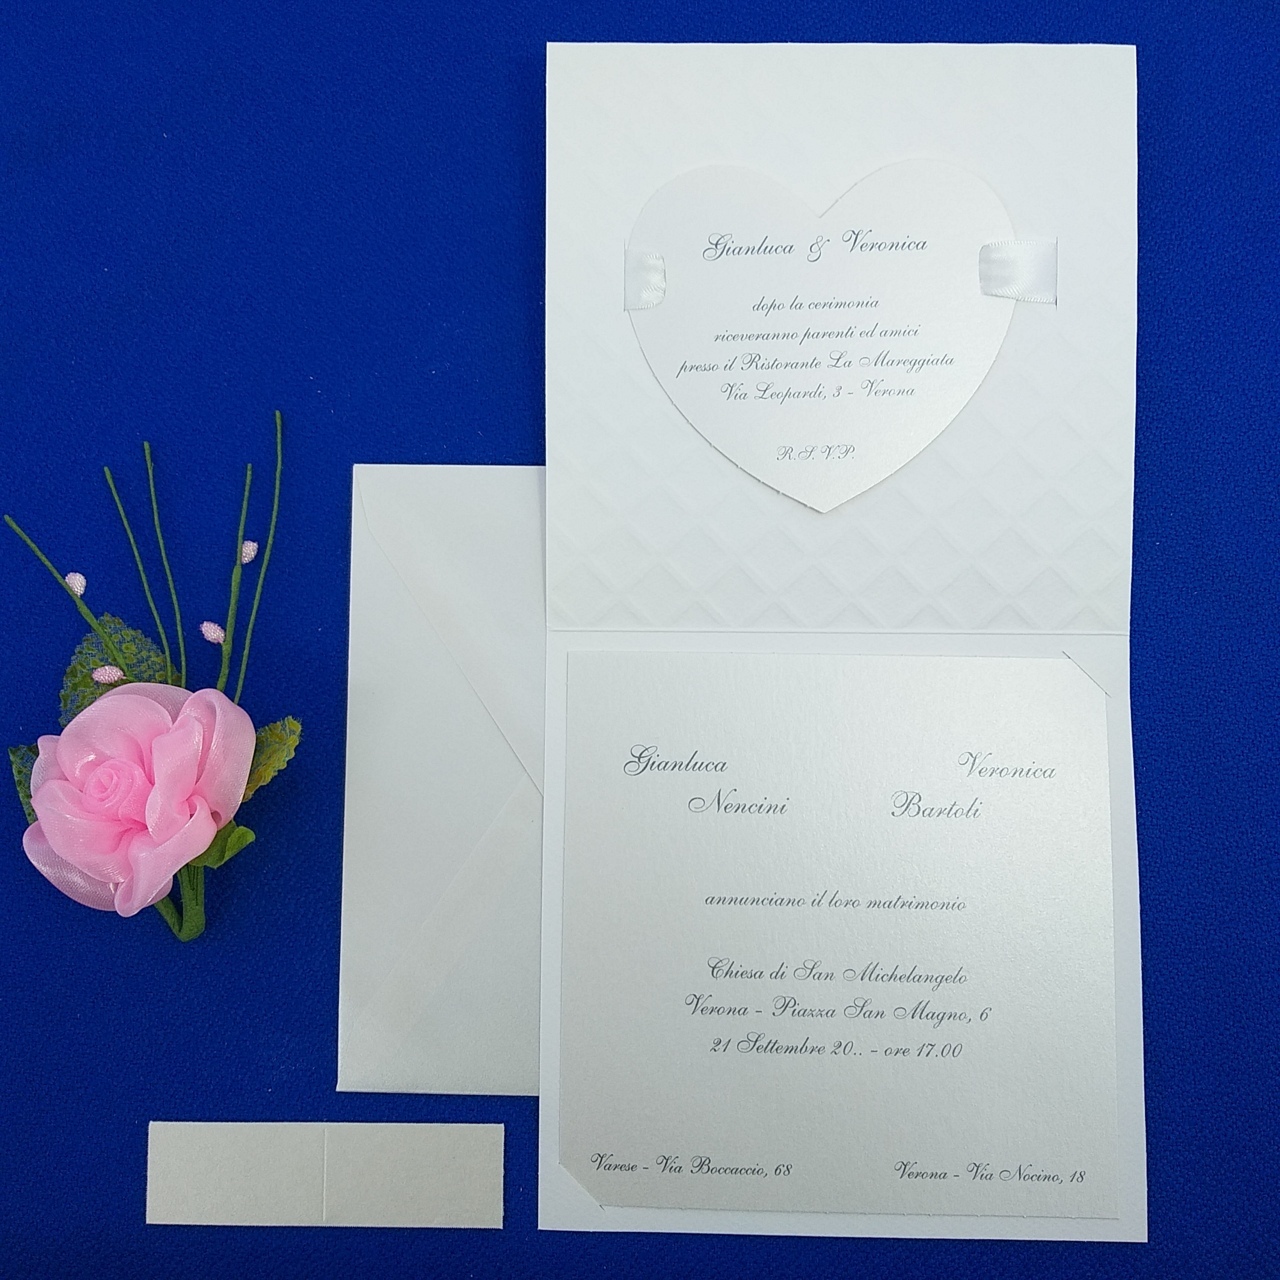 Gianluca & Veronica
dopo la cerimonia
riceveranno parenti ed amici
presso il Ristorante La Mareggiata
Via Leopardi, 3 - Verona
R.S.V.P.
Gianluca Veronica
Nencini Bartoli
annunciano il loro matrimonio
Chiesa di San Michelangelo
Verona - Piazza San Magno, 6
21 Settembre 20.. - ore 17.00
Varese - Via Boccaccio, 68 Verona - Via Nocino, 18